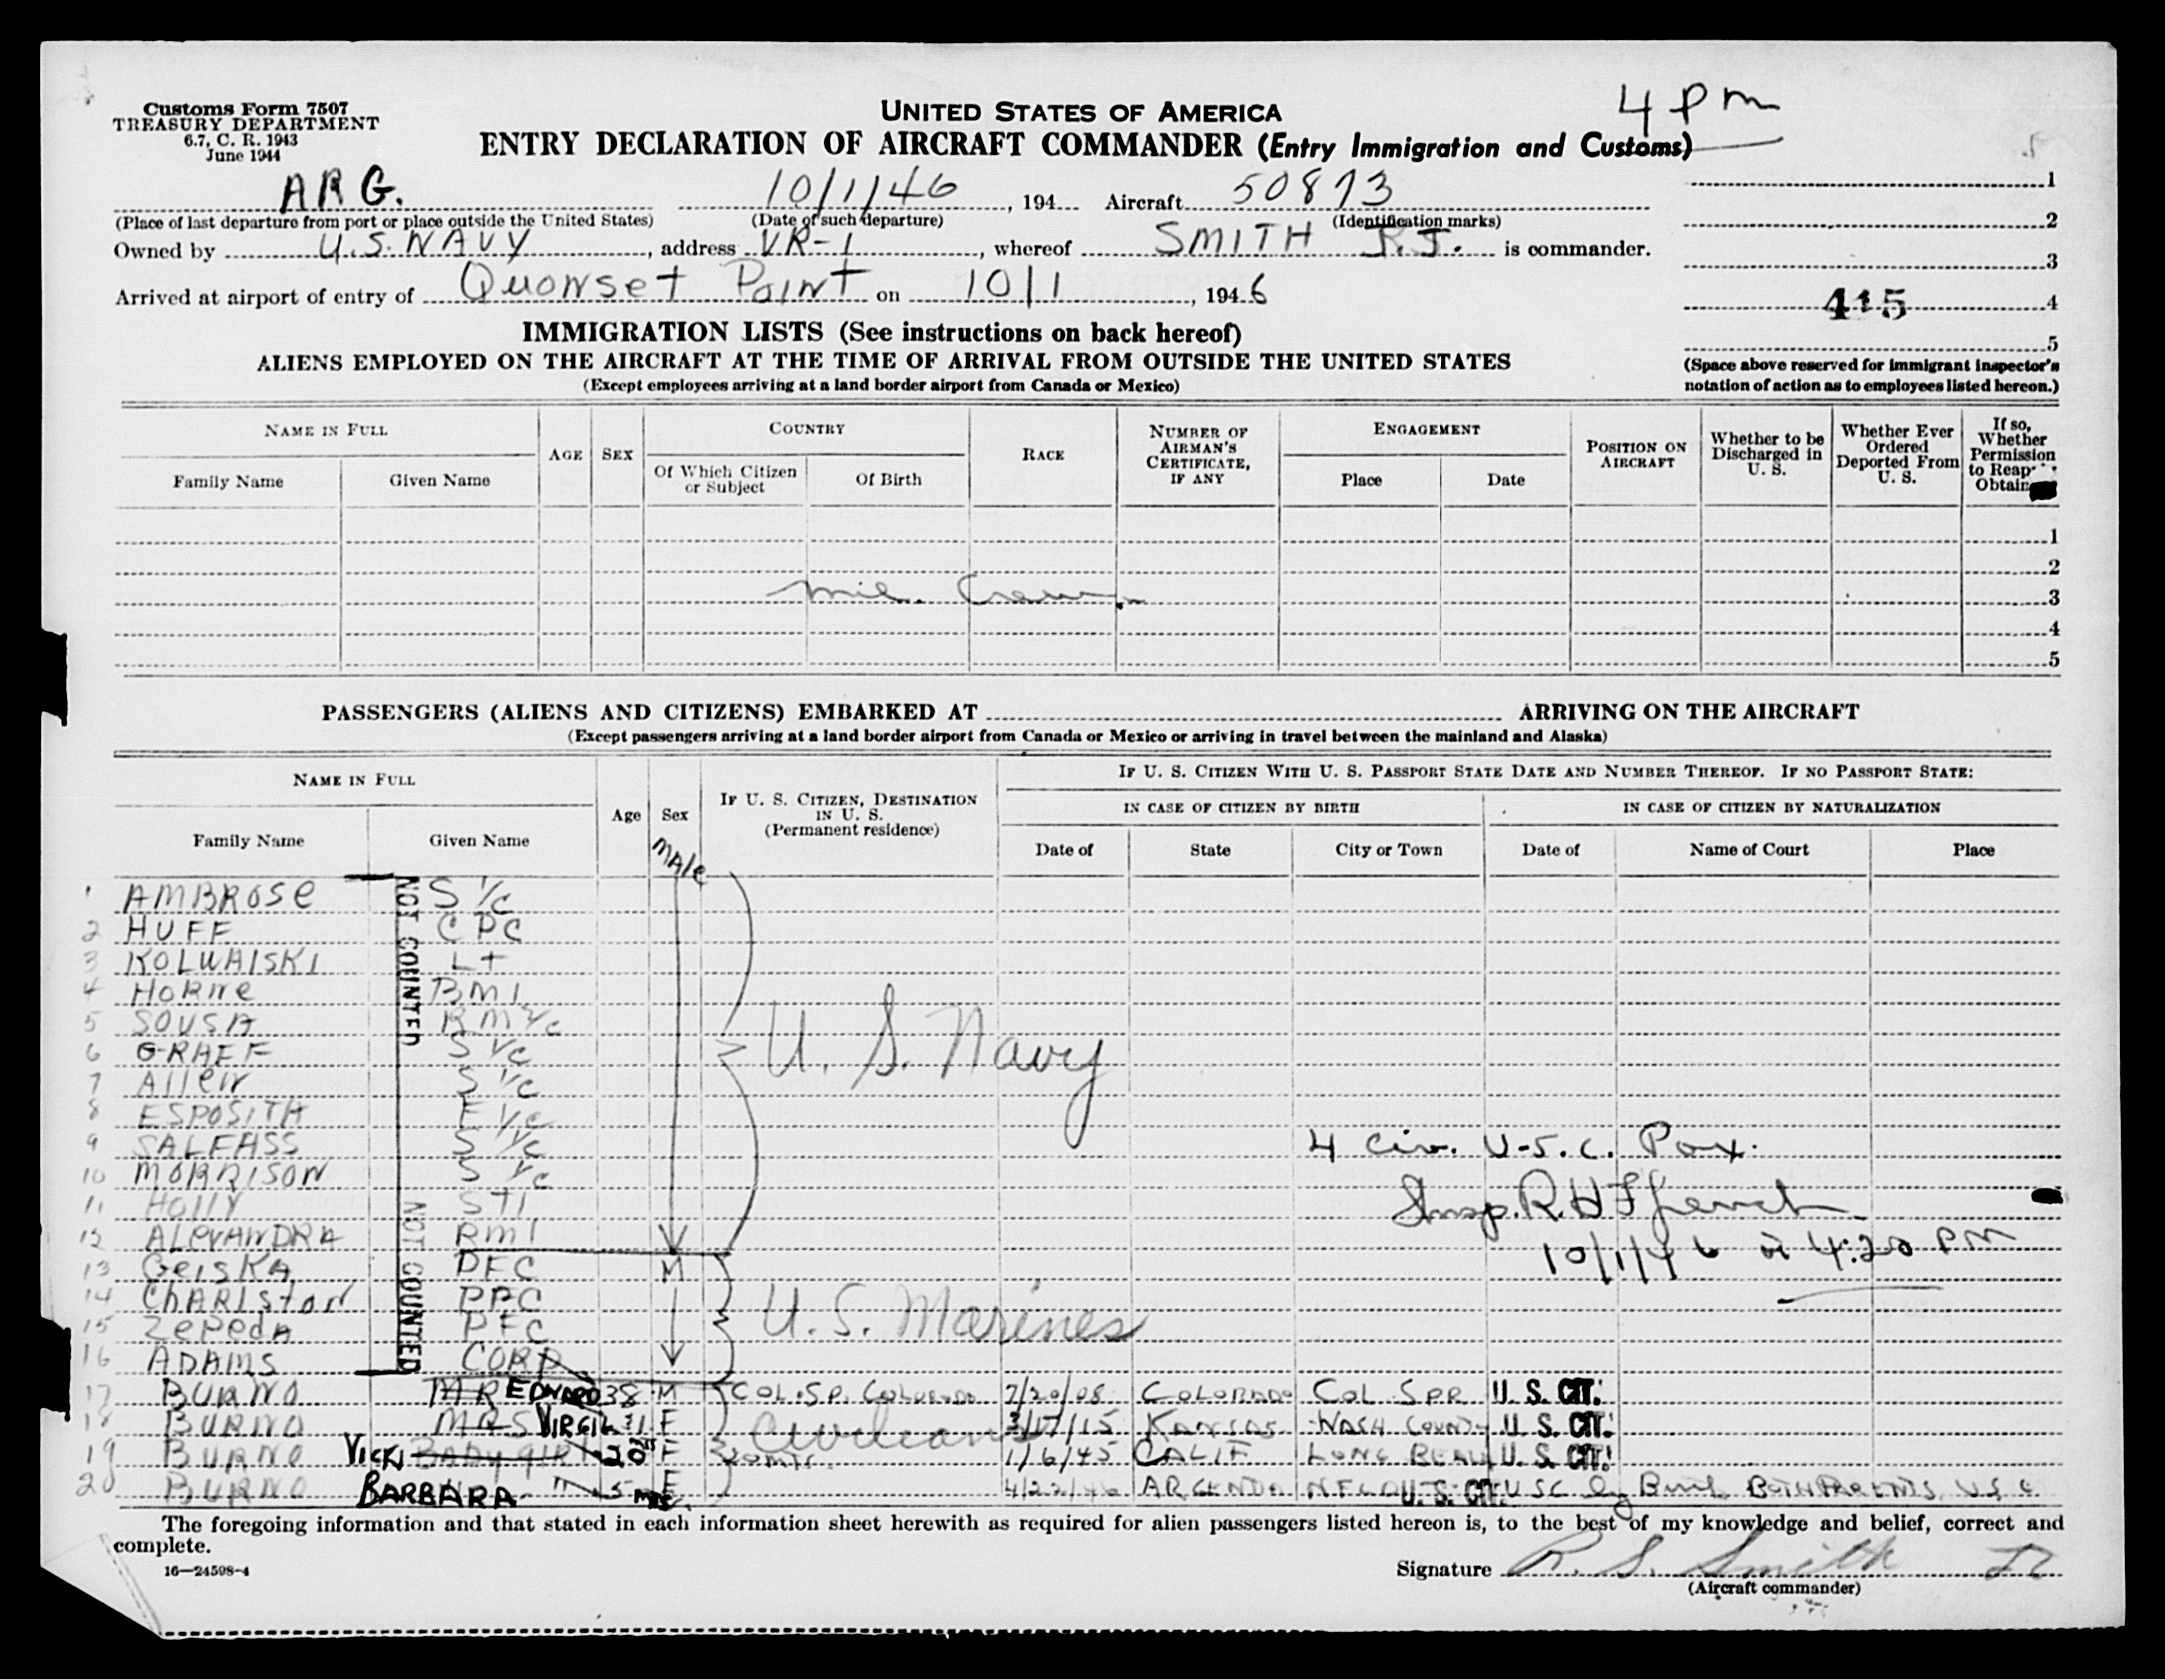 Customs Form 7507
TREASURY DEPARTMENT
6.7, C. R. 1943
June 1944
UNITED STATES OF AMERICA
4 pm
ENTRY DECLARATION OF AIRCRAFT COMMANDER (Entry Immigration and Customs)
ARG. 10/1/46, 194 Aircraft 50873 1
(Place of last departure from port or place outside the United States) (Date of such departure) (Identification marks) 2
Owned by U.S. NAVY, address VR-1, whereof SMITH is commander.
3
Arrived at airport of entry of Quonset Point on 10/1, 1946
415 4
IMMIGRATION LISTS (See instructions on back hereof)
5
ALIENS EMPLOYED ON THE AIRCRAFT AT THE TIME OF ARRIVAL FROM OUTSIDE THE UNITED STATES
(Except employees arriving at a land border airport from Canada or Mexico)
(Space above reserved for immigrant inspector's notation of action as to employees listed hereon.)
NAME IN FULL
Family Name
Given Name
AGE
SEX
COUNTRY
Of Which Citizen or Subject
Of Birth
RACE
NUMBER OF AIRMAN'S CERTIFICATE, IF ANY
ENGAGEMENT
Place
Date
POSITION ON AIRCRAFT
Whether to be Discharged in U. S.
Whether Ever Ordered Deported From U. S.
If so, Whether Permission to Obtain
1
2
mil. Crew 3
4
5
PASSENGERS (ALIENS AND CITIZENS) EMBARKED AT ARRIVING ON THE AIRCRAFT
(Except passengers arriving at a land border airport from Canada or Mexico or arriving in travel between the mainland and Alaska)
NAME IN FULL
Family Name
Given Name
Age
Sex
IF U. S. CITIZEN, DESTINATION IN U. S.
(Permanent residence)
IF U. S. CITIZEN WITH U. S. PASSPORT STATE DATE AND NUMBER THEREOF. IF NO PASSPORT STATE:
IN CASE OF CITIZEN BY BIRTH
IN CASE OF CITIZEN BY NATURALIZATION
Date of
State
City or Town
Date of
Name of Court
Place
MAle
NOT COUNTED
1 AMBROSe S 1/c
2 HUFF CPC
3 KOLWAISKI Lt
4 HORNe BM1
5 SOUSA RM 2/c
6 GRAEF S 1/c
U. S. Navy
7 Allen S 1/c
8 ESPOSITA F 1/c
9 SALFASS S 1/c
4 Civ. U.S.C. Pax.
10 MORRISON S 1/c
11 HOllY ST1
Insp. R. H.
NOT COUNTED
12 ALeVANDRA RM1
10/1/46 4:20 PM
13 GeisKA PFC M
14 ChARLston PFC
U. S. Marines
15 ZePedA PFC
16 ADAMS CORP
17 BURNO MR EDWARD 38 M COL. SP. COLORADO 7/20/08 COLORADO COL SPR U. S. CIT.
18 BURNO MRS VIRGIL 31 F Civilians 3/17/15 KANSAS WASH COUNTY U. S. CIT.
19 BURNO VICKI BABY GIRL 20 F 1/6/45 CALIF LONG BEACH U. S. CIT.
20 BURNO BARBARA " 5 mos. F 4/22/46 ARGENTIA NFLD U. S. CIT. USC by Birth BOTH PARENTS U.S.C.
The foregoing information and that stated in each information sheet herewith as required for alien passengers listed hereon is, to the best of my knowledge and belief, correct and complete.
16—24598-4
Signature R. S. Smith
(Aircraft commander)